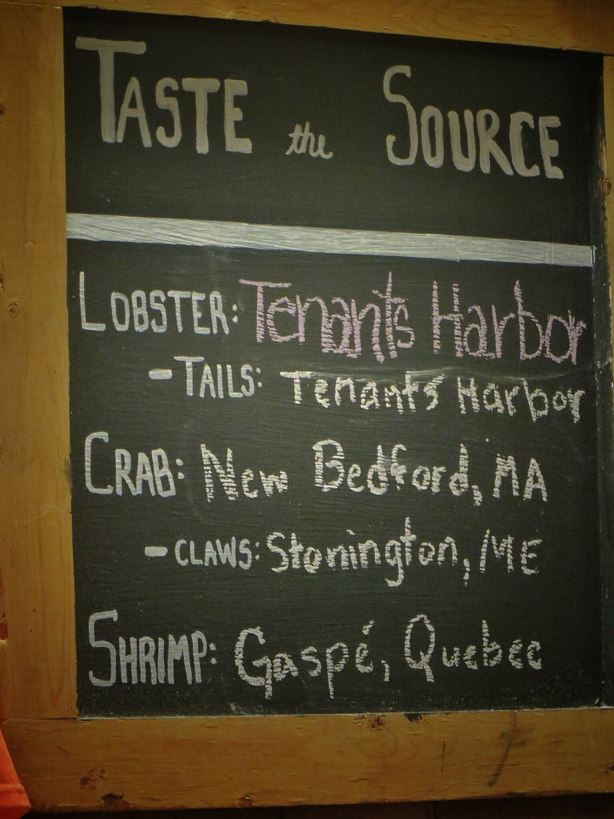 TASTE the SOURCE
LOBSTER: Tenants Harbor
- TAILS: Tenants Harbor
CRAB: New Bedford, MA
- CLAWS: Stonington, ME
SHRIMP: Gaspé, Quebec